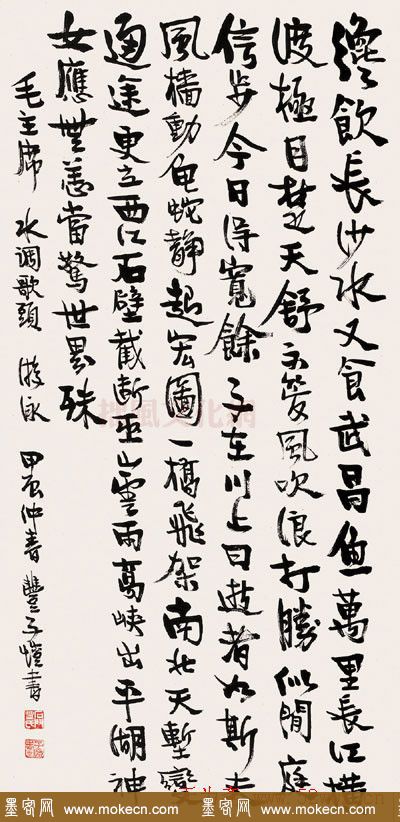 纔飲長沙水又食武昌魚萬里長江橫
渡極目楚天舒不管風吹浪打勝似閒庭
信步今日得寬餘子在川上曰逝者如斯夫
風檣動龜蛇靜起宏圖一橋飛架南北天塹變
通途更立西江石壁截斷巫山雲雨高峽出平湖神
女應無恙當驚世界殊
毛主席 水调歌頭 游泳 甲辰仲春 豐子愷書
墨客网 www.mokecn.com 墨客网 www.mokecn.com